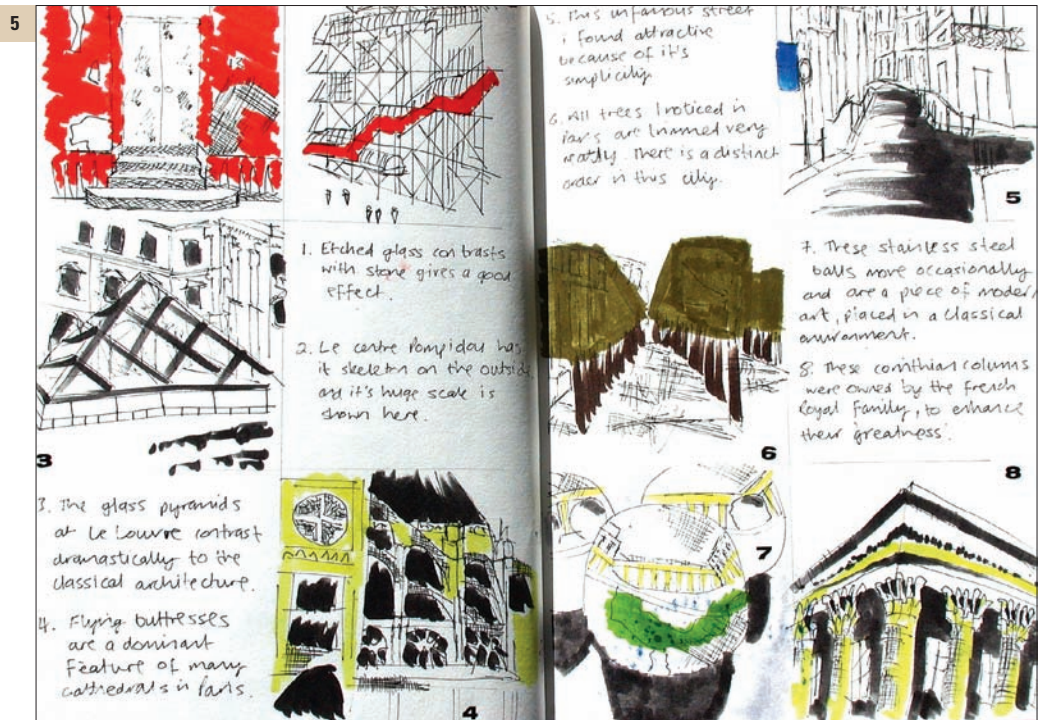 5
1. Etched glass contrasts
with stone gives a good
effect.
2. Le centre Pompidou has
it skeleton on the outside
and it's huge scale is
shown here.
3
3. The glass pyramids
at Le Louvre contrast
dramastically to the
classical architecture.
4. Flying buttresses
are a dominant
feature of many
cathedrals in Paris.
4
5. This infamous street
i found attractive
because of it's
simplicity
6. All trees I noticed in
Paris are trimmed very
neatly. There is a distinct
order in this city.
5
6
7. These stainless steel
balls move occasionally
and are a piece of modern
art, placed in a classical
environment.
8. These corinthian columns
were owned by the French
Royal Family, to enhance
their 'greatness'.
7
8